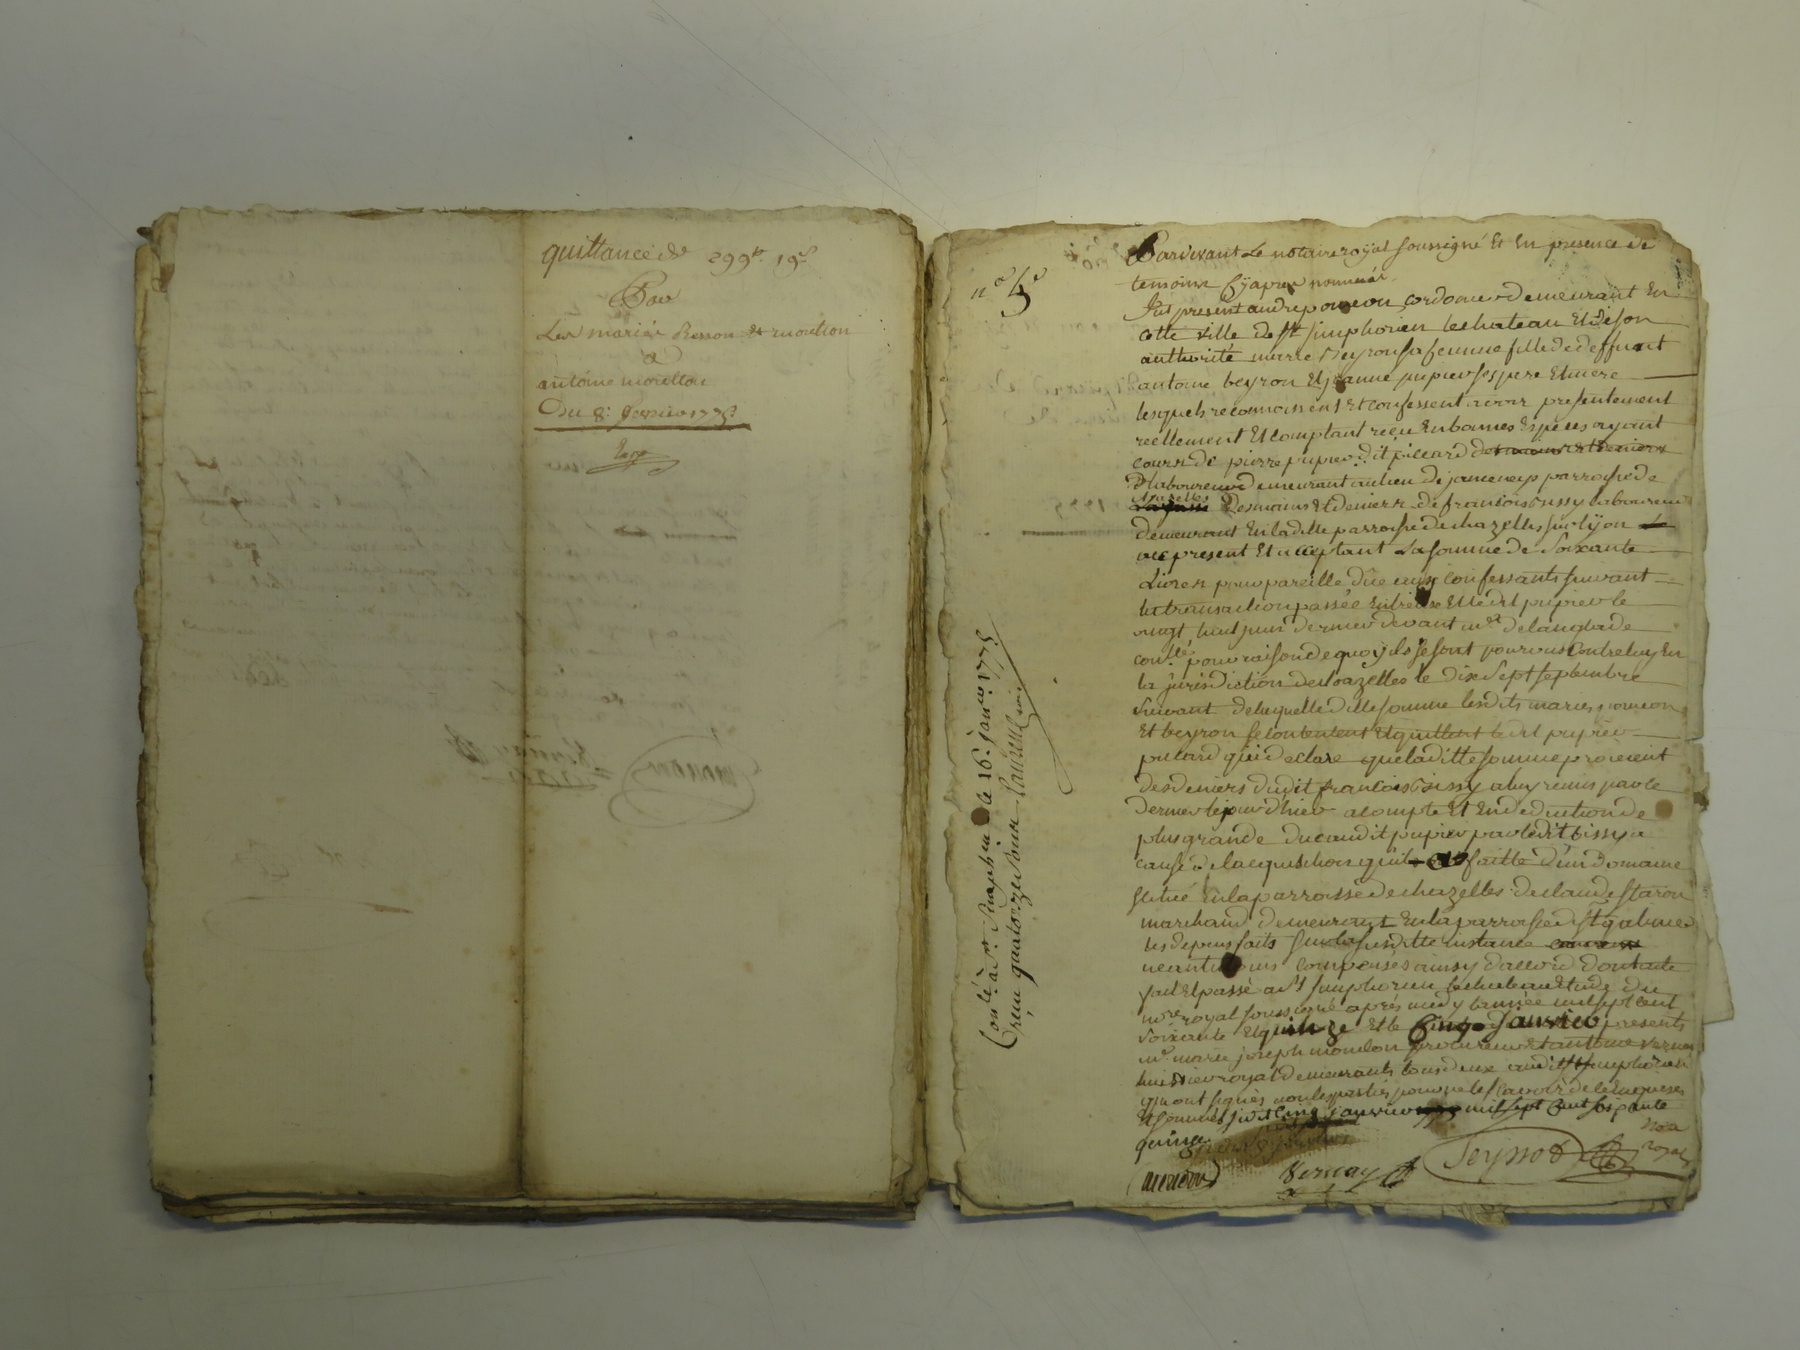 quittance de 299# 19s
Par
Les mariés Besson et mouton
a
antoine morellon
Du 8e Janvier 1775
no 5e
Contlé à St Simphin le 16e janer 1775
Reçu quatorze sous
Pardevant Le notaire royal soussigné Et En presence de
temoins Cy apres nommés
fut present andre poncon cordonnier demeurant En
cette ville de St simphorien lechateau Et de son
authorité marie Beyron sa femme fille de deffunt
antoine beyron Et jeanne pupier ses pere Et mere
lesquels reconnoissent Et confessent avoir presentement
reellement Et comptant reçu En bonnes Especes ayant
cours de pierre pupier dit picard
laboureur demeurant au lieu de parroisse de
chazelles Des mains Et deniers de francois bissy laboureur
demeurant En laditte parroisse de chazelles sur lyon
present Et acceptant La somme de Soixante
Livres pour pareille düe aux confessants suivant
la transaction passée Entre eux Et ledit pupier le
vingt huit juin dernier devant me delanglade
pour raison de quoy ils se sont pourvus contre luy En
la jurisdiction de chazelles le dix sept septembre
suivant de laquelle ditte somme lesdits mariés poncon
Et beyron se contentent Et quittent ledit pupier
picard qui declare que laditte somme provient
des deniers dudit francois bissy a luy remis par ce
dernier le jour d'hier a compte Et En deduction de
plus grande due audit pupier par ledit bissy a
cause de lacquisition qu'il a faitte d'un domaine
scitué En la parroisse de chazelles de claude staron
marchand demeurant En la parroisse de St galmier
les depens faits sur la susditte instance
neantmoins compensés ainsy d'accord dont acte
fait Et passé a St simphorien lechateau Etude du
nore royal soussigné aprés midy l'année mil sept cent
soixante Et quinze Et le Cinq Janvier presents
me marie joseph moudon procureur Et antoine vernay
huissier royal demeurants tous deux audit St simphorien
qui ont signés non les parties pour ne le sçavoir de ce Enquises
Et sommés ledit cinq janvier mil sept cent soixante
quinze
moudon Vernay Peyssod nore
royal